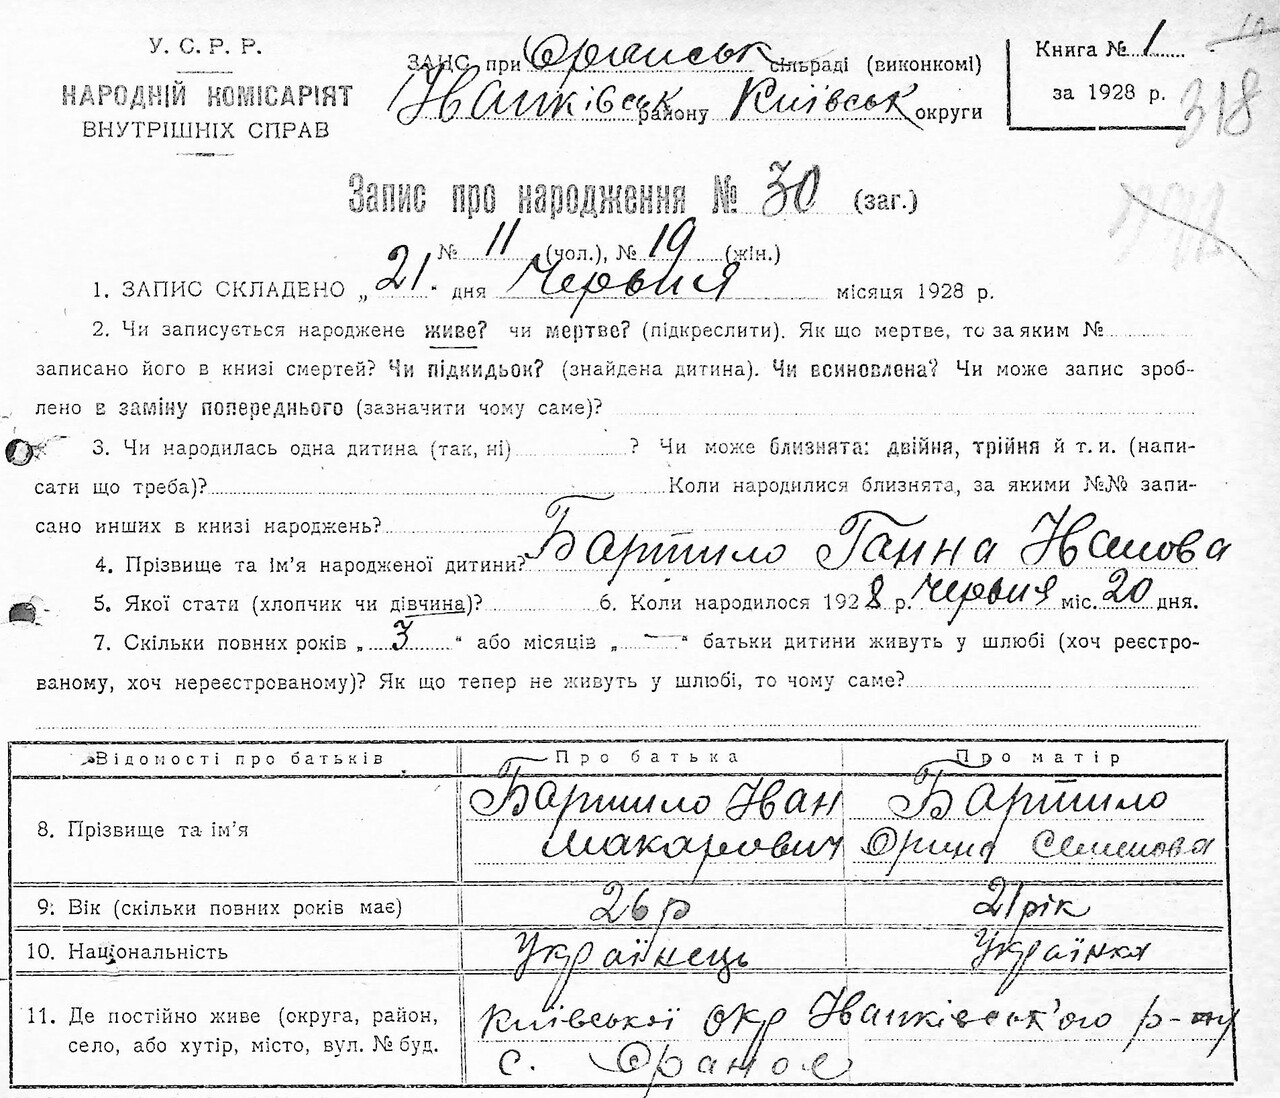 У. С. Р. Р.
НАРОДНІЙ КОМІСАРІЯТ
ВНУТРІШНІХ СПРАВ
ЗАГС при Оранськ сільраді (виконкомі)
Іванківськ району Київськ округи
Книга № 1
за 1928 р.
318
Запис про народження № 30 (заг.)
№ 11 (чол.), № 19 (жін.)
1. ЗАПИС СКЛАДЕНО „21“ дня Червня місяця 1928 р.
2. Чи записується народжене живе? чи мертве? (підкреслити). Як що мертве, то за яким №
записано його в книзі смертей? Чи підкидьок? (знайдена дитина). Чи всиновлена? Чи може запис зроб-
лено в заміну попереднього (зазначити чому саме)?
3. Чи народилась одна дитина (так, ні) ? Чи може близнята: двійня, трійня й т. и. (напи-
сати що треба)? Коли народилися близнята, за якими №№ запи-
сано инших в книзі народжень?
4. Прізвище та ім’я народженої дитини? Бартило Ганна Іванова
5. Якої стати (хлопчик чи дівчина)? 6. Коли народилося 1928 р. Червня міс. 20 дня.
7. Скільки повних років „ 3 “ або місяців „ — “ батьки дитини живуть у шлюбі (хоч реєстро-
ваному, хоч нереєстрованому)? Як що тепер не живуть у шлюбі, то чому саме?
Відомості про батьків Про батька Про матір
8. Прізвище та ім’я Бартило Іван Макарович Бартило Орина Семенова
9. Вік (скільки повних років має) 26 р 21 рік
10. Національність Українець Українка
11. Де постійно живе (округа, район, Київської окр Іванківськ'ого р-ну
село, або хутір, місто, вул. № буд. с. Оране